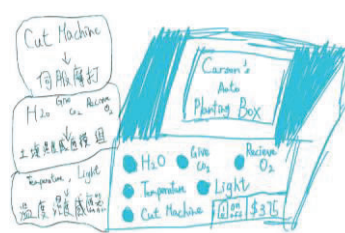 Cut Machine
伺服摩打
H2O Give CO2 Recieve O2
土壤濕度感應模組
Temperature, Light
溫度濕度感應器
Carson's
Auto
Planting Box
H2O
Give CO2
Recieve O2
Temperature
Light
Cut Machine
$375